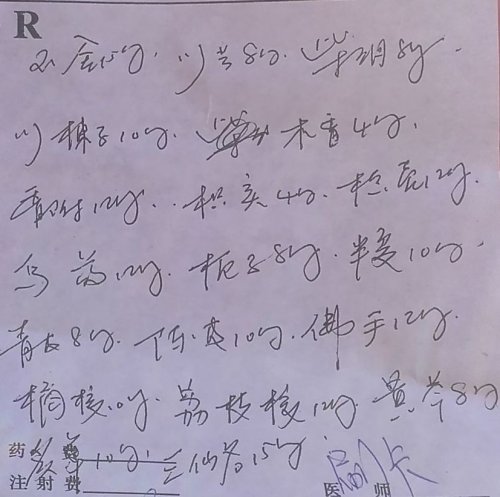 R
玉金15g. 川芎8g. 柴胡8g.
川楝子10g. 木香4g.
香附12g. 枳实4g. 枳壳12g.
乌药12g. 栀子8g. 半夏10g.
青皮8g. 陈皮10g. 佛手12g.
橘核10g. 荔枝核12g. 黄芩8g
药费 10g. 三仙各15g
注射费 医师